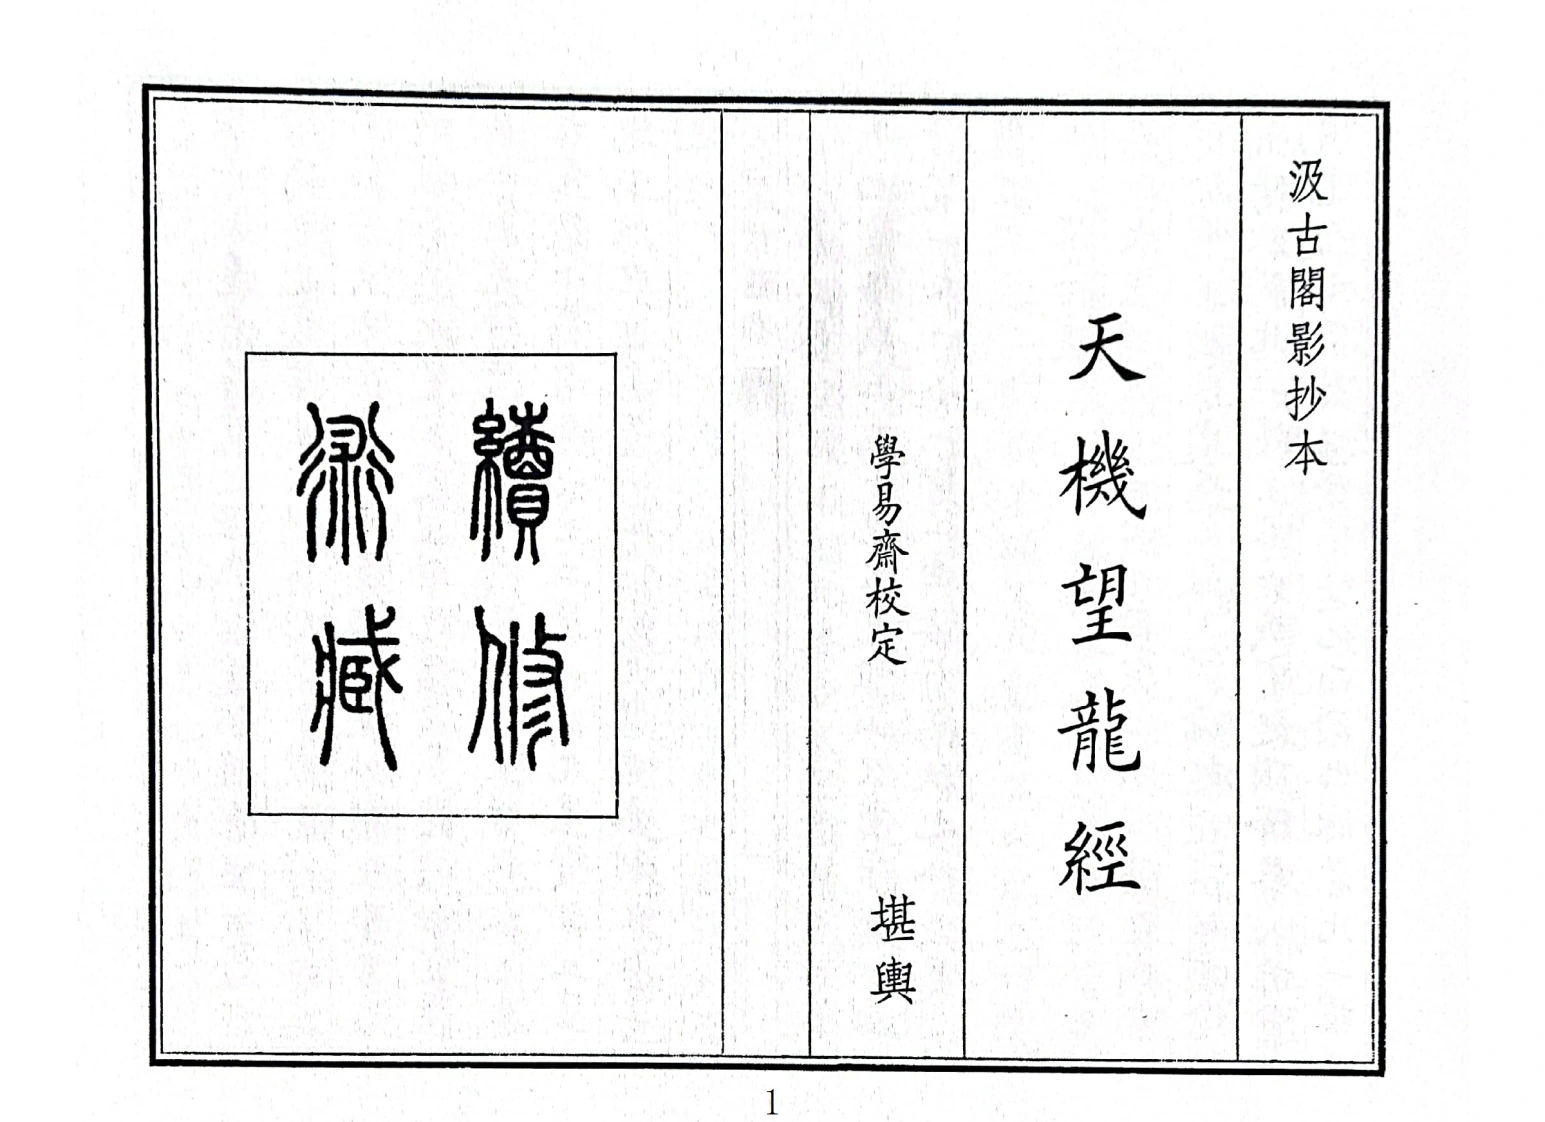 汲古閣影抄本
天機望龍經
學易齋校定 堪輿
續修
術藏
1